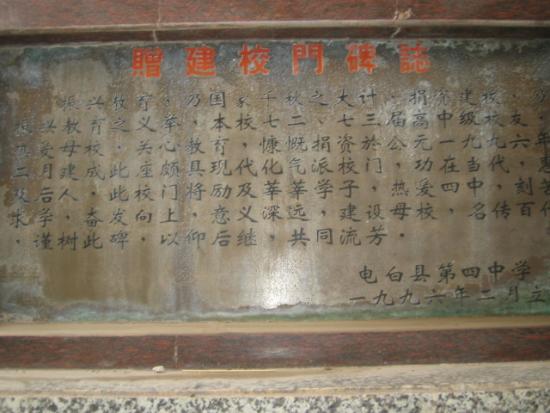 贈建校門碑誌
振兴教育,乃国家千秋之大计,捐
兴育之义举,本校七二、七三届高级校友
热爱母校,关心教育,慷慨捐资於公元一九九六年
二月建成此座颇具现代化气派校门,功在当代,惠
及后人,此校门将励及莘莘学子,热爱四中,刻苦
学,奋发向上,意义深远,建设母校,名传百
谨树此碑,以仰后继,共同流芳。
电白县第四中学
一九九六年二月立